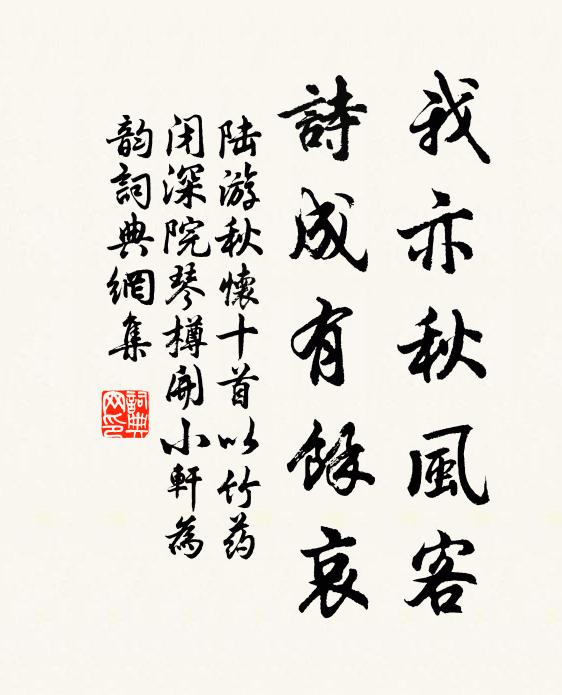 我亦秋風客
詩成有餘哀
陆游秋懷十首以竹药
闭深院琴樽開小軒為
韵詞典網集
詞典
网印